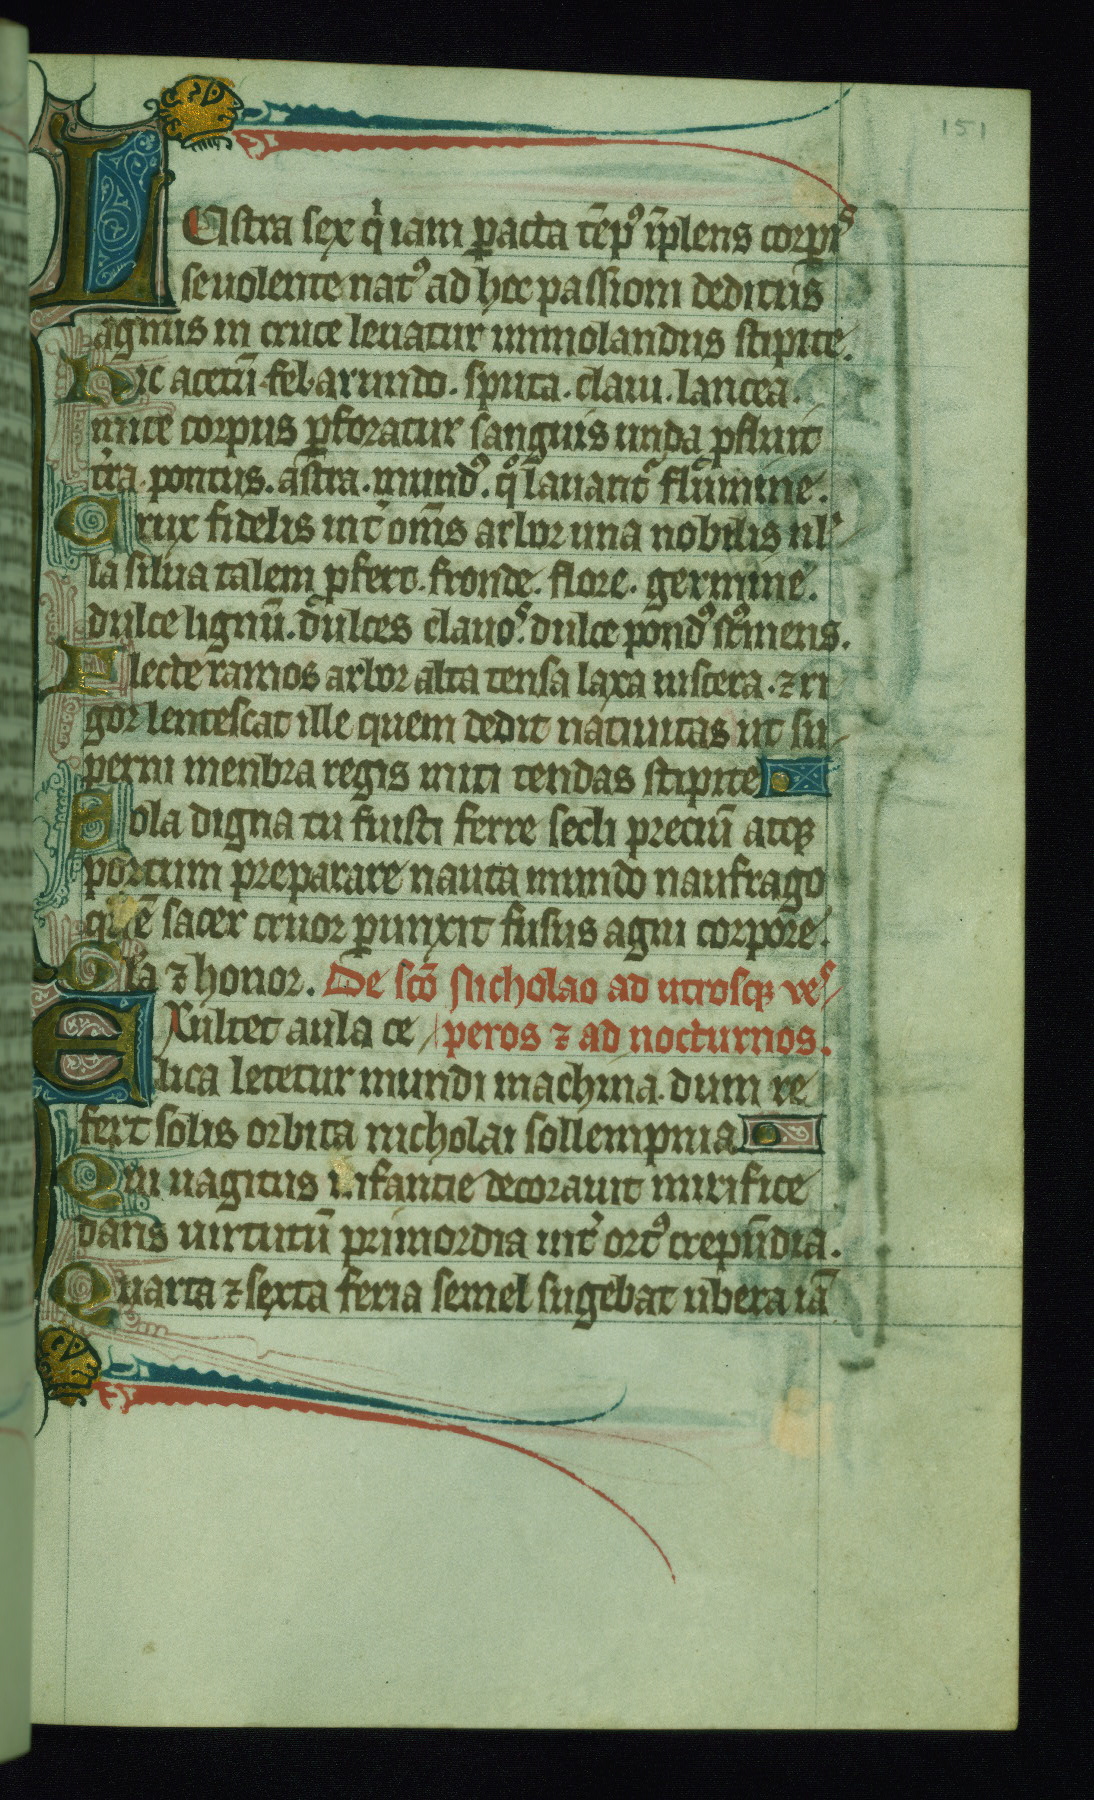 151
LUstra sex qͥ iam ꝑacta tēpꝰ īplens corpiˢ
se uolente natꝰ ad hoc passioni deditus
agnus in cruce leuatur immolandus stipite.
Hic acetū. fel. arundo. sputa. claui. lancea.
mite corpus ꝑforatur sanguis unda ꝓfluit
tͥra. pontus. astra. mundꝰ. qͦ lauantᷣ flumine.
Crux fidelis int̉ om̄s arbor una nobilis ul
la silua talem ꝓfert. fronde. flore. germine.
dulce lignū. dulces clauoˢ. dulce pondꝰ sꝰtinens.
Flecte ramos arbor alta tensa laxa uiscera. ⁊ ri
gor lentescat ille quem dedit natiuitas ut su
perni menbra regis miti tendas stipite
Sola digna tu fuisti ferre secli preciū atqꝫ
portum preparare nauta mundo naufrago
quē sacer cruor ꝑunxit fusus agni corpore.
Gla ⁊ honor. De sc̄o nicholao ad utrosqꝫ veˢ
EXultet aula ce peros ⁊ ad nocturnos.
lica letetur mundi machina. dum re
fert solis orbita nicholai sollempnia
Qui uagitus infantie decorauit mirifice
dans uirtutū primordia int̉ ortꝰ crepūdia.
Quarta ⁊ sexta feria semel sugebat ubera iā